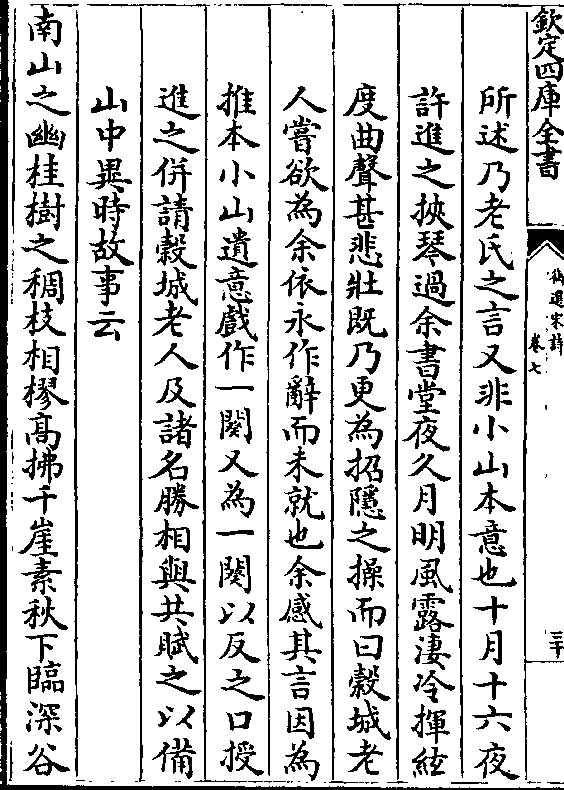 欽定四庫全書
御選宋詩
卷七
三十
所述乃老氏之言又非小山本意也十月十六夜
許進之挾琴過余書堂夜久月明風露淒冷揮絃
度曲聲甚悲壯既乃更為招隱之操而曰穀城老
人嘗欲為余依永作辭而未就也余感其言因為
推本小山遺意戲作一闋又為一闋以反之口授
進之併請穀城老人及諸名勝相與共賦之以備
山中異時故事云
南山之幽桂樹之稠枝相樛高拂千崖素秋下臨深谷